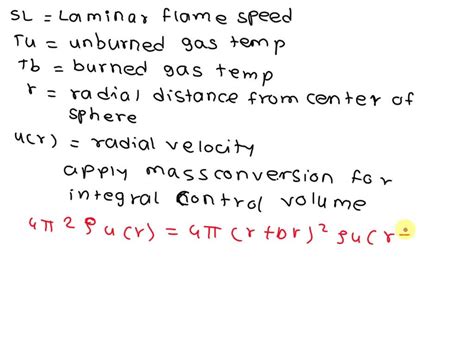 SL = Laminar flame speed
Tu = unburned gas temp
Tb = burned gas temp
r = radial distance from center of
sphere
u(r) = radial velocity
apply mass conversion for
integral control volume
4π² ρ u(r) = 4π (r+Dr)² ρu(r